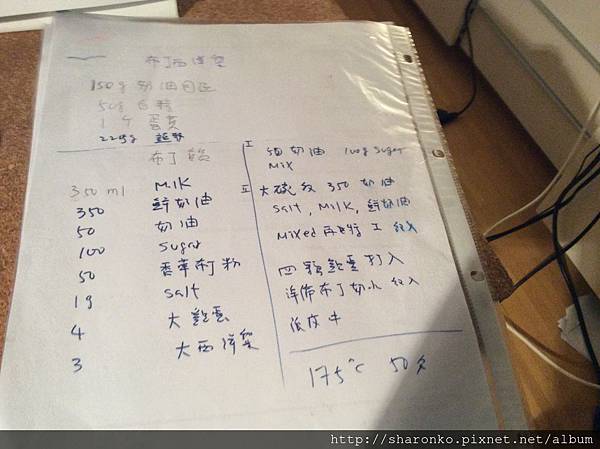 布丁西洋梨
150g 奶油
50g 白糖
1 个 蛋黃
225g 麵粉
布丁餡
350 ml MILK
350 鮮奶油
50 奶油
100 sugar
50 香草布丁粉
1g salt
4 大雞蛋
3 大西洋梨
I 奶油 100g sugar
Mix
II 大碗 350 奶油
salt, Milk, 鮮奶油
Mixed 再 I
四顆雞蛋打入
布丁
175°C 50分
http://sharonko.pixnet.net/album